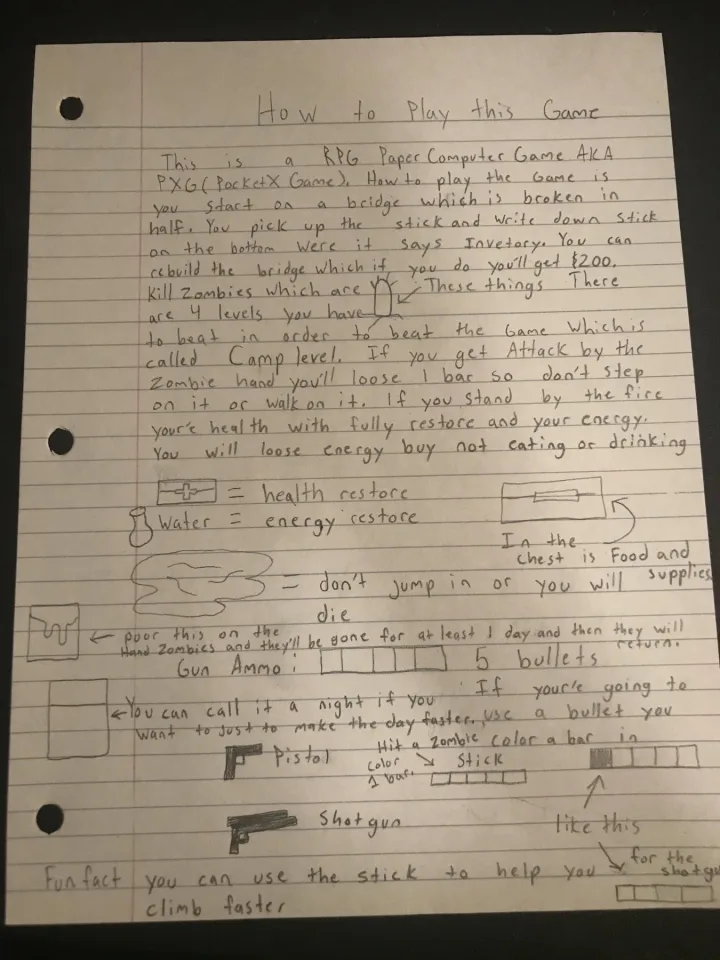 How to Play this Game
This is a RPG Paper Computer Game AKA
PXG (PocketX Game). How to play the Game is
you start on a bridge which is broken in
half. You pick up the stick and write down stick
on the bottom were it says Invetory. You can
rebuild the bridge which if you do you'll get $200.
Kill Zombies which are These things There
are 4 levels you have
to beat in order to beat the Game which is
called Camp level. If you get Attack by the
Zombie hand you'll loose 1 bar so don't step
on it or walk on it. If you stand by the fire
your'e health with fully restore and your energy.
You will loose energy buy not eating or drinking
= health restore
Water = energy restore
In the
chest is Food and
supplies
= don't jump in or you will
die
poor this on the
Hand Zombies and they'll be gone for at least 1 day and then they will
return.
Gun Ammo: 5 bullets
You can call it a night if you
want to just to make the day faster.
If your'e going to
use a bullet you
color a bar in
Pistol
Hit a Zombie
color
1 bar.
Stick
like this
Shotgun
for the
shotgu
Fun fact you can use the stick to help you
climb faster